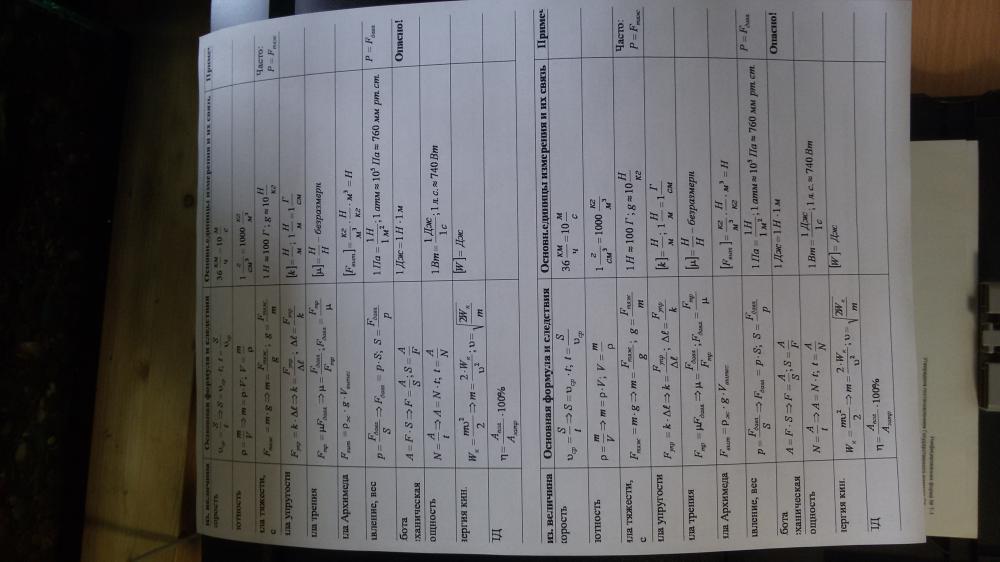 из. величина Основная формула и следствия Основн.единицы измерения и их связь Примеч
корость υ_ср = S/t ⇒ S = υ_ср · t; t = S/υ_ср 36 км/ч = 10 м/с
лотность ρ = m/V ⇒ m = ρ · V; V = m/ρ 1 г/см³ = 1000 кг/м³
ла тяжести, с F_тяж = m · g ⇒ m = F_тяж/g; g = F_тяж/m 1 Н ≈ 100 Г; g ≈ 10 Н/кг Часто: P = F_тяж
ла упругости F_упр = k · Δℓ ⇒ k = F_упр/Δℓ; Δℓ = F_упр/k [k] = Н/м; 1 Н/м = 1 Г/см
ла трения F_тр = μF_давл ⇒ μ = F_тр/F_давл; F_давл = F_тр/μ [μ] = Н/Н − безразмерн
ла Архимеда F_выт = ρ_ж · g · V_вытес [F_выт] = кг/м³ · Н/кг · м³ = Н
авление, вес p = F_давл/S ⇒ F_давл = p · S; S = F_давл/p 1 Па = 1Н/1м²; 1 атм ≈ 10⁵ Па ≈ 760 мм рт.ст. P = F_давл
бота A = F · S ⇒ F = A/S; S = A/F 1 Дж = 1Н · 1 м Опасно!
еханическая ощность N = A/t ⇒ A = N · t; t = A/N 1 Вт = 1 Дж/1 с; 1 л. с. ≈ 740 Вт
нергия кин. W_к = mυ²/2 ⇒ m = 2·W_к/υ²; υ = √(2W_к/m) [W] = Дж
ПД η = A_пол/A_затр · 100%
из. величина Основная формула и следствия Основн.единицы измерения и их связь Примеч
корость υ_ср = S/t ⇒ S = υ_ср · t; t = S/υ_ср 36 км/ч = 10 м/с
лотность ρ = m/V ⇒ m = ρ · V; V = m/ρ 1 г/см³ = 1000 кг/м³
ла тяжести, с F_тяж = m · g ⇒ m = F_тяж/g; g = F_тяж/m 1 Н ≈ 100 Г; g ≈ 10 Н/кг Часто: P = F_тяж
ла упругости F_упр = k · Δℓ ⇒ k = F_упр/Δℓ; Δℓ = F_упр/k [k] = Н/м; 1 Н/м = 1 Г/см
ла трения F_тр = μF_давл ⇒ μ = F_тр/F_давл; F_давл = F_тр/μ [μ] = Н/Н − безразмерн
ла Архимеда F_выт = ρ_ж · g · V_вытес [F_выт] = кг/м³ · Н/кг · м³ = Н
авление, вес p = F_давл/S ⇒ F_давл = p · S; S = F_давл/p 1 Па = 1Н/1м²; 1 атм ≈ 10⁵ Па ≈ 760 мм рт.ст. P = F_давл
бота A = F · S ⇒ F = A/S; S = A/F 1 Дж = 1Н · 1 м Опасно!
еханическая ощность N = A/t ⇒ A = N · t; t = A/N 1 Вт = 1 Дж/1 с; 1 л. с. ≈ 740 Вт
нергия кин. W_к = mυ²/2 ⇒ m = 2·W_к/υ²; υ = √(2W_к/m) [W] = Дж
ПД η = A_пол/A_затр · 100%